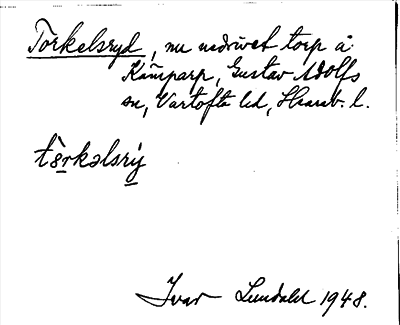 Torkelsryd, nu nedrivet torp å
Kämparp, Gustav Adolfs
sn, Vartofta hd, Skarab. l.
tårkəlsrý
Ivar Lundahl 1948.